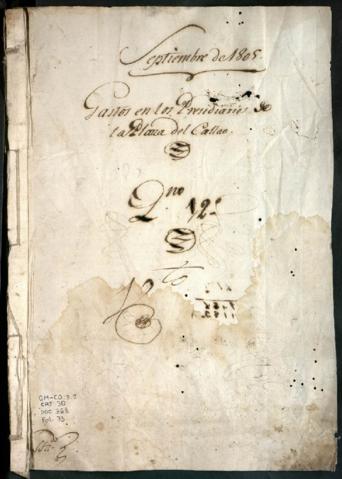 Septiembre de 1805
Gastos en los Presidiarios de
la Plaza del Callao.
Qno 12
to
OM-CO
CAJ 30
DOC 368
Fol. 73